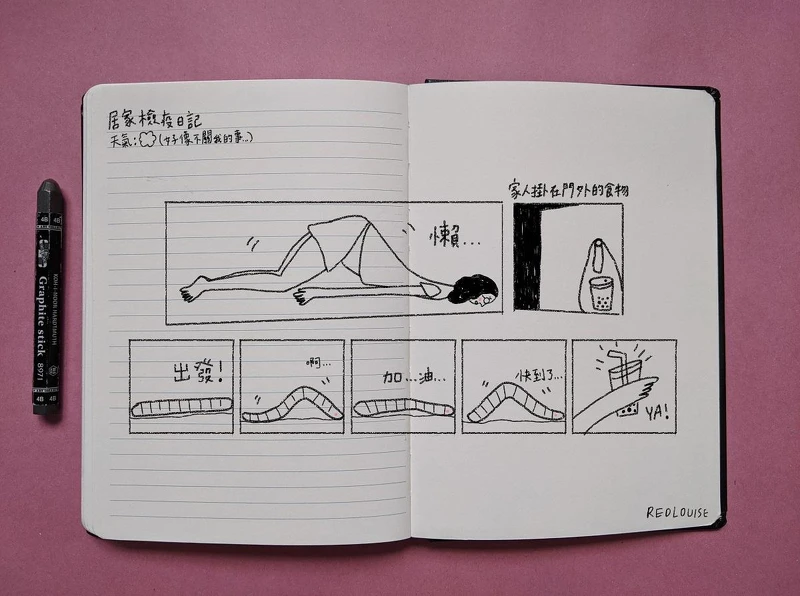 居家檢疫日記
天氣:(好像不關我的事...)
懶...
家人掛在門外的食物
出發!
啊...
加...油...
快到了...
YA!
REDLOUISE
4B 4B
KOH-I-NOOR HARDTMUTH
Graphite stick 8971
4B 4B